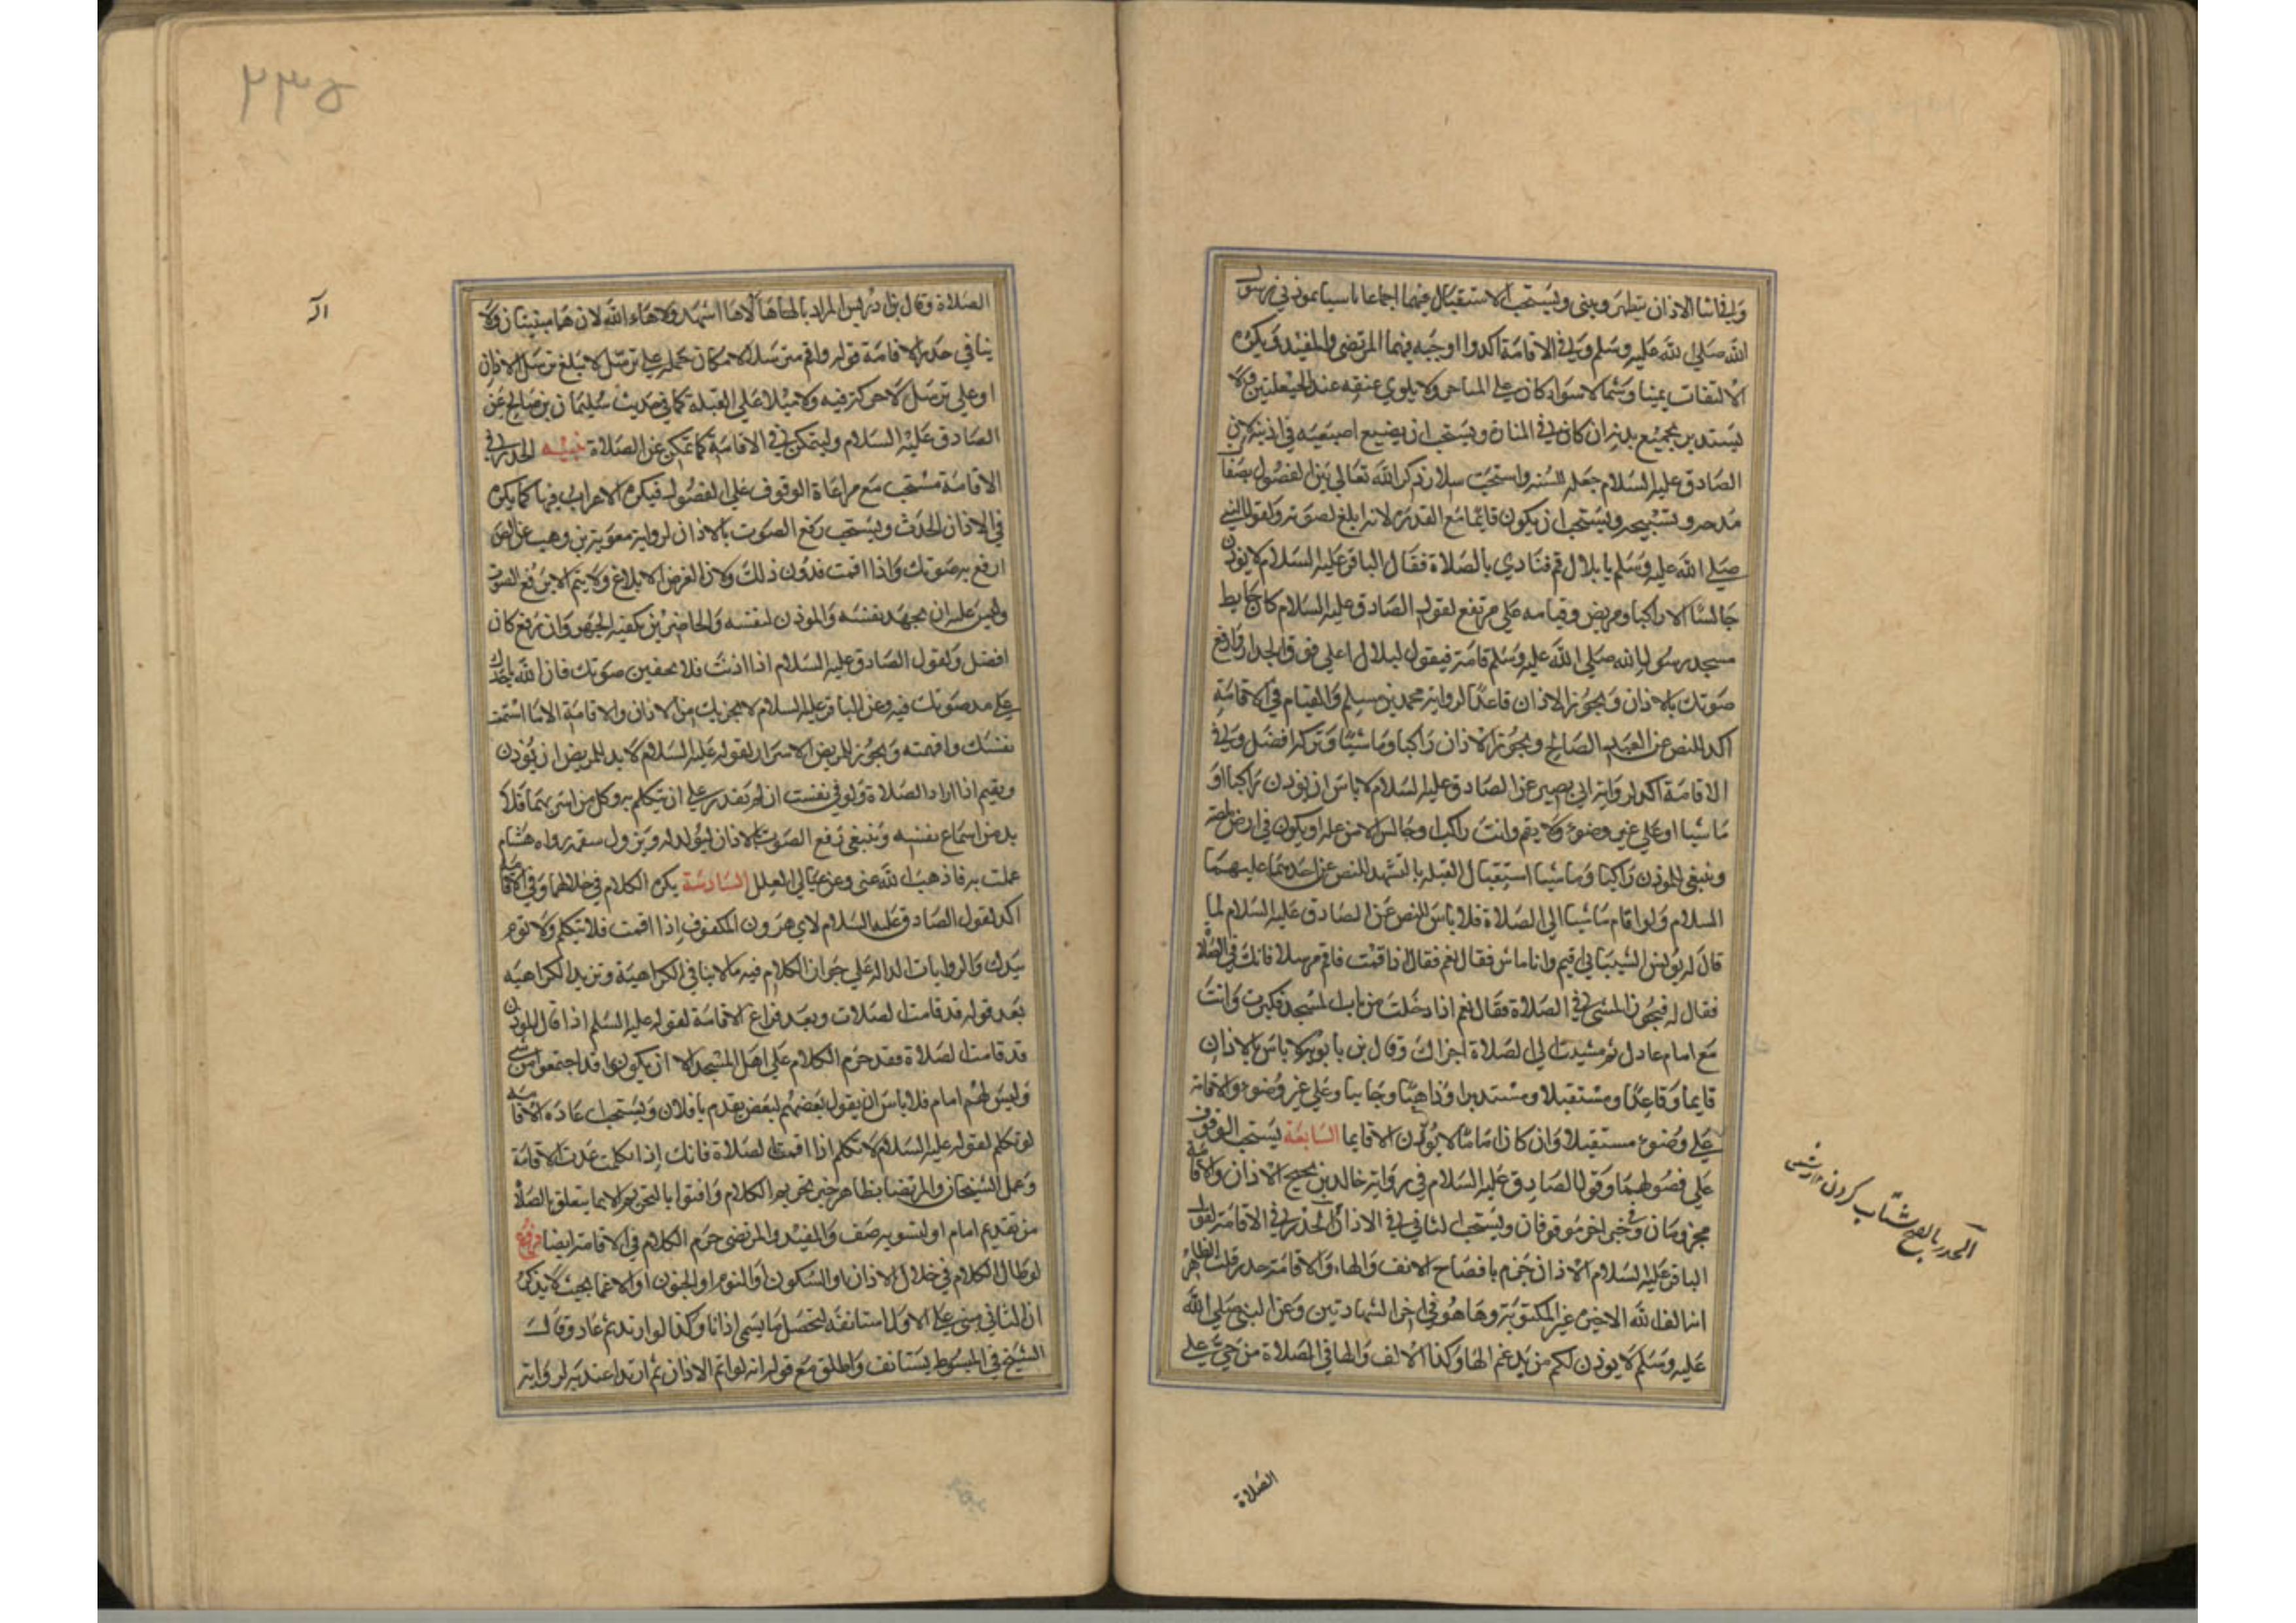 وفي اثنا الاذان يتطهر ويبني ويستحب الاستقبال فيهما اجماعا تاسيا بموذني رسول
الله صلى الله عليه وسلم وفي الاقامة اكد واوجبه فيهما المرتضى والمفيد ويكره
الالتفات يمينا وشمالا سواء كان على المنارة ولا يلوي عنقه عند الحيعلتين ولا
يستدير بجميع بدنه ان كان في المنارة ويستحب ان يضع اصبعيه في اذنيه لان
الصادق عليه السلام جعله السنه واستحب ذكر الله تعالى بين الفصول
وتسبيحه ويستحب ان يكون قايما مع القدرة لانه ابلغ لصوته ولقول النبي
صلى الله عليه وسلم يا بلال قم فنادي بالصلاة فقال الباقر عليه السلام لا يوذن
جالسا الا راكبا ومريض وقيامه على مرتفع لقول الصادق عليه السلام كان حايط
مسجد رسول الله صلى الله عليه وسلم قامة فيقول لبلال اعلى فوق الجدار وارفع
صوتك بالاذان ويجوز الاذان قاعدا لرواية محمد بن مسلم والقيام في الاقامة
اكد للنص عن العبد الصالح ويجوز الاذان راكبا وماشيا وتركه افضل وفي
الاقامة اكد لرواية ابي بصير عن الصادق عليه السلام لا باس ان يوذن راكبا او
ماشيا او على غير وضوء ولا يقم وانت راكب او جالس الا من علة او يكون في ارض
وينبغي للموذن راكبا وماشيا استقبال القبله بالتشهد للنص عن احدهما عليهما
السلام ولو اقام ماشيا الى الصلاة فلا باس للنص عن الصادق عليه السلام لما
قال له يونس الشيباني اقيم وانا ماش فقال نعم فقال اذا اقمت فاقم مرسلا فانك في الصلاة
فقال له فيجوز المشي في الصلاة فقال نعم اذا دخلت من باب المسجد فكبرت وانت
مع امام عادل ثم مشيت الى الصلاة اجزاك وقال بن بابويه لا باس بالاذان
قايما وقاعدا ومستقبلا ومستدبرا وذاهبا وجايبا وعلى غير وضوء والاقامة
على وضوء مستقبلا وان كان اماما لا يوذن الا قايما السابعة يستحب الوقوف
على فصولهما وقول الصادق عليه السلام في رواية خالد بن نجيح الاذان والاقامة
مجزومان وفي خبر اخر موقوفان ويستحب التاني في الاذان والحدر في الاقامة لقول
الباقر عليه السلام الاذان جزم بافصاح الالف والهاء والاقامة حدر قلت الظاهر
انه الف الله الاخيرة غير المكتوبة وهاهو في اخر الشهادتين وعن النبي صلى الله
عليه وسلم لا يوذن لكم من يدغم الها وكذا الالف والها في الصلاة من حي على
الصلاة
الحدر بالفتح شتاب كردن
۲۳۵
الصلاة وقال بن ادريس المراد بالها ها الاها اشهد ولا هاء الله لان هما مبينتان ولا
ينافي حدر الاقامة قوله واقم مترسلا لامكان حمله على ترسل لا يبلغ ترسل الاذان
او على ترسل لا حركة فيه ولا ميلا على القبلة كما في حديث سليمان بن صالح عن
الصادق عليه السلام وليتمكن في الاقامة كما يتمكن عن الصلاة تنبيه الحدر في
الاقامة مستحب مع مراعاة الوقوف على الفصول فيكره الاعراب فيها كما يكره
في الاذان الحدث ويستحب رفع الصوت بالاذان لرواية معوية بن وهب عن الصـ
ارفع به صوتك واذا اقمت فدون ذلك ولان الغرض الابلاغ ولا يتم الا برفع الصوت
وليس عليه ان يجهد نفسه والموذن لنفسه والحاضرين يكفيه الجهر وان رفع كان
افضل ولقول الصادق عليه السلام اذا اذنت فلا تخفين صوتك فان الله ياجرك
على مد صوتك فيه وعن الباقر عليه السلام لا يجزيك من الاذان والاقامة الا ما اسمعت
نفسك وافهمته ويجوز للمريض الاسرار لقوله عليه السلام لا بد للمريض ان يوذن
ويقيم اذا اراد الصلاة ولو في نفسه ان لم يقدر على ان يتكلم به وكل من اسر بهما فلا
بد من اسماع نفسه وينبغي رفع الصوت بالاذان ليولد له ويزول سقمه رواه هشام
عملت به فاذهب الله عني وعن عيالي العلل السادسة يكره الكلام في خلالهما وفي الاقامة
اكد لقول الصادق عليه السلام لابي هرون المكفوف اذا اقمت فلا تتكلم ولا توم
بيدك والروايات الداله على جواز الكلام فيه ما لا ينافي الكراهية وتزيد الكراهيه
بعد قوله قد قامت الصلات وبعد فراغ الاقامة لقوله عليه السلم اذا قال الموذن
قد قامت الصلاة فقد حرم الكلام على اهل المسجد الا ان يكونوا قد اجتمعوا من شتى
وليس لهم امام فلا باس ان يقول بعضهم لبعض تقدم يا فلان ويستحب اعادة الاقامة
لو تكلم لقوله عليه السلام لا تكلم اذا اقمت الصلاة فانك اذا تكلمت اعدت الاقامة
وعمل الشيخان والمرتضى بظاهر خبر تحريم الكلام وافتوا بالتحريم الا بما يتعلق بالصلاة
من تقديم امام او لتسويه صف والمفيد والمرتضى حرم الكلام في الاقامة ايضا فرع
لو طال الكلام في خلال الاذان او السكون او النوم او الجنون او الاغما بحيث لا يذكر
ان الثاني مبني على الاول استانفه لتحصل ما يسمى اذانا وكذا لو ارتد ثم عاد وقال
الشيخ في المبسوط يستانف واطلق مع قوله انه لو اتم الاذان ثم ارتد اعتد به لرواية